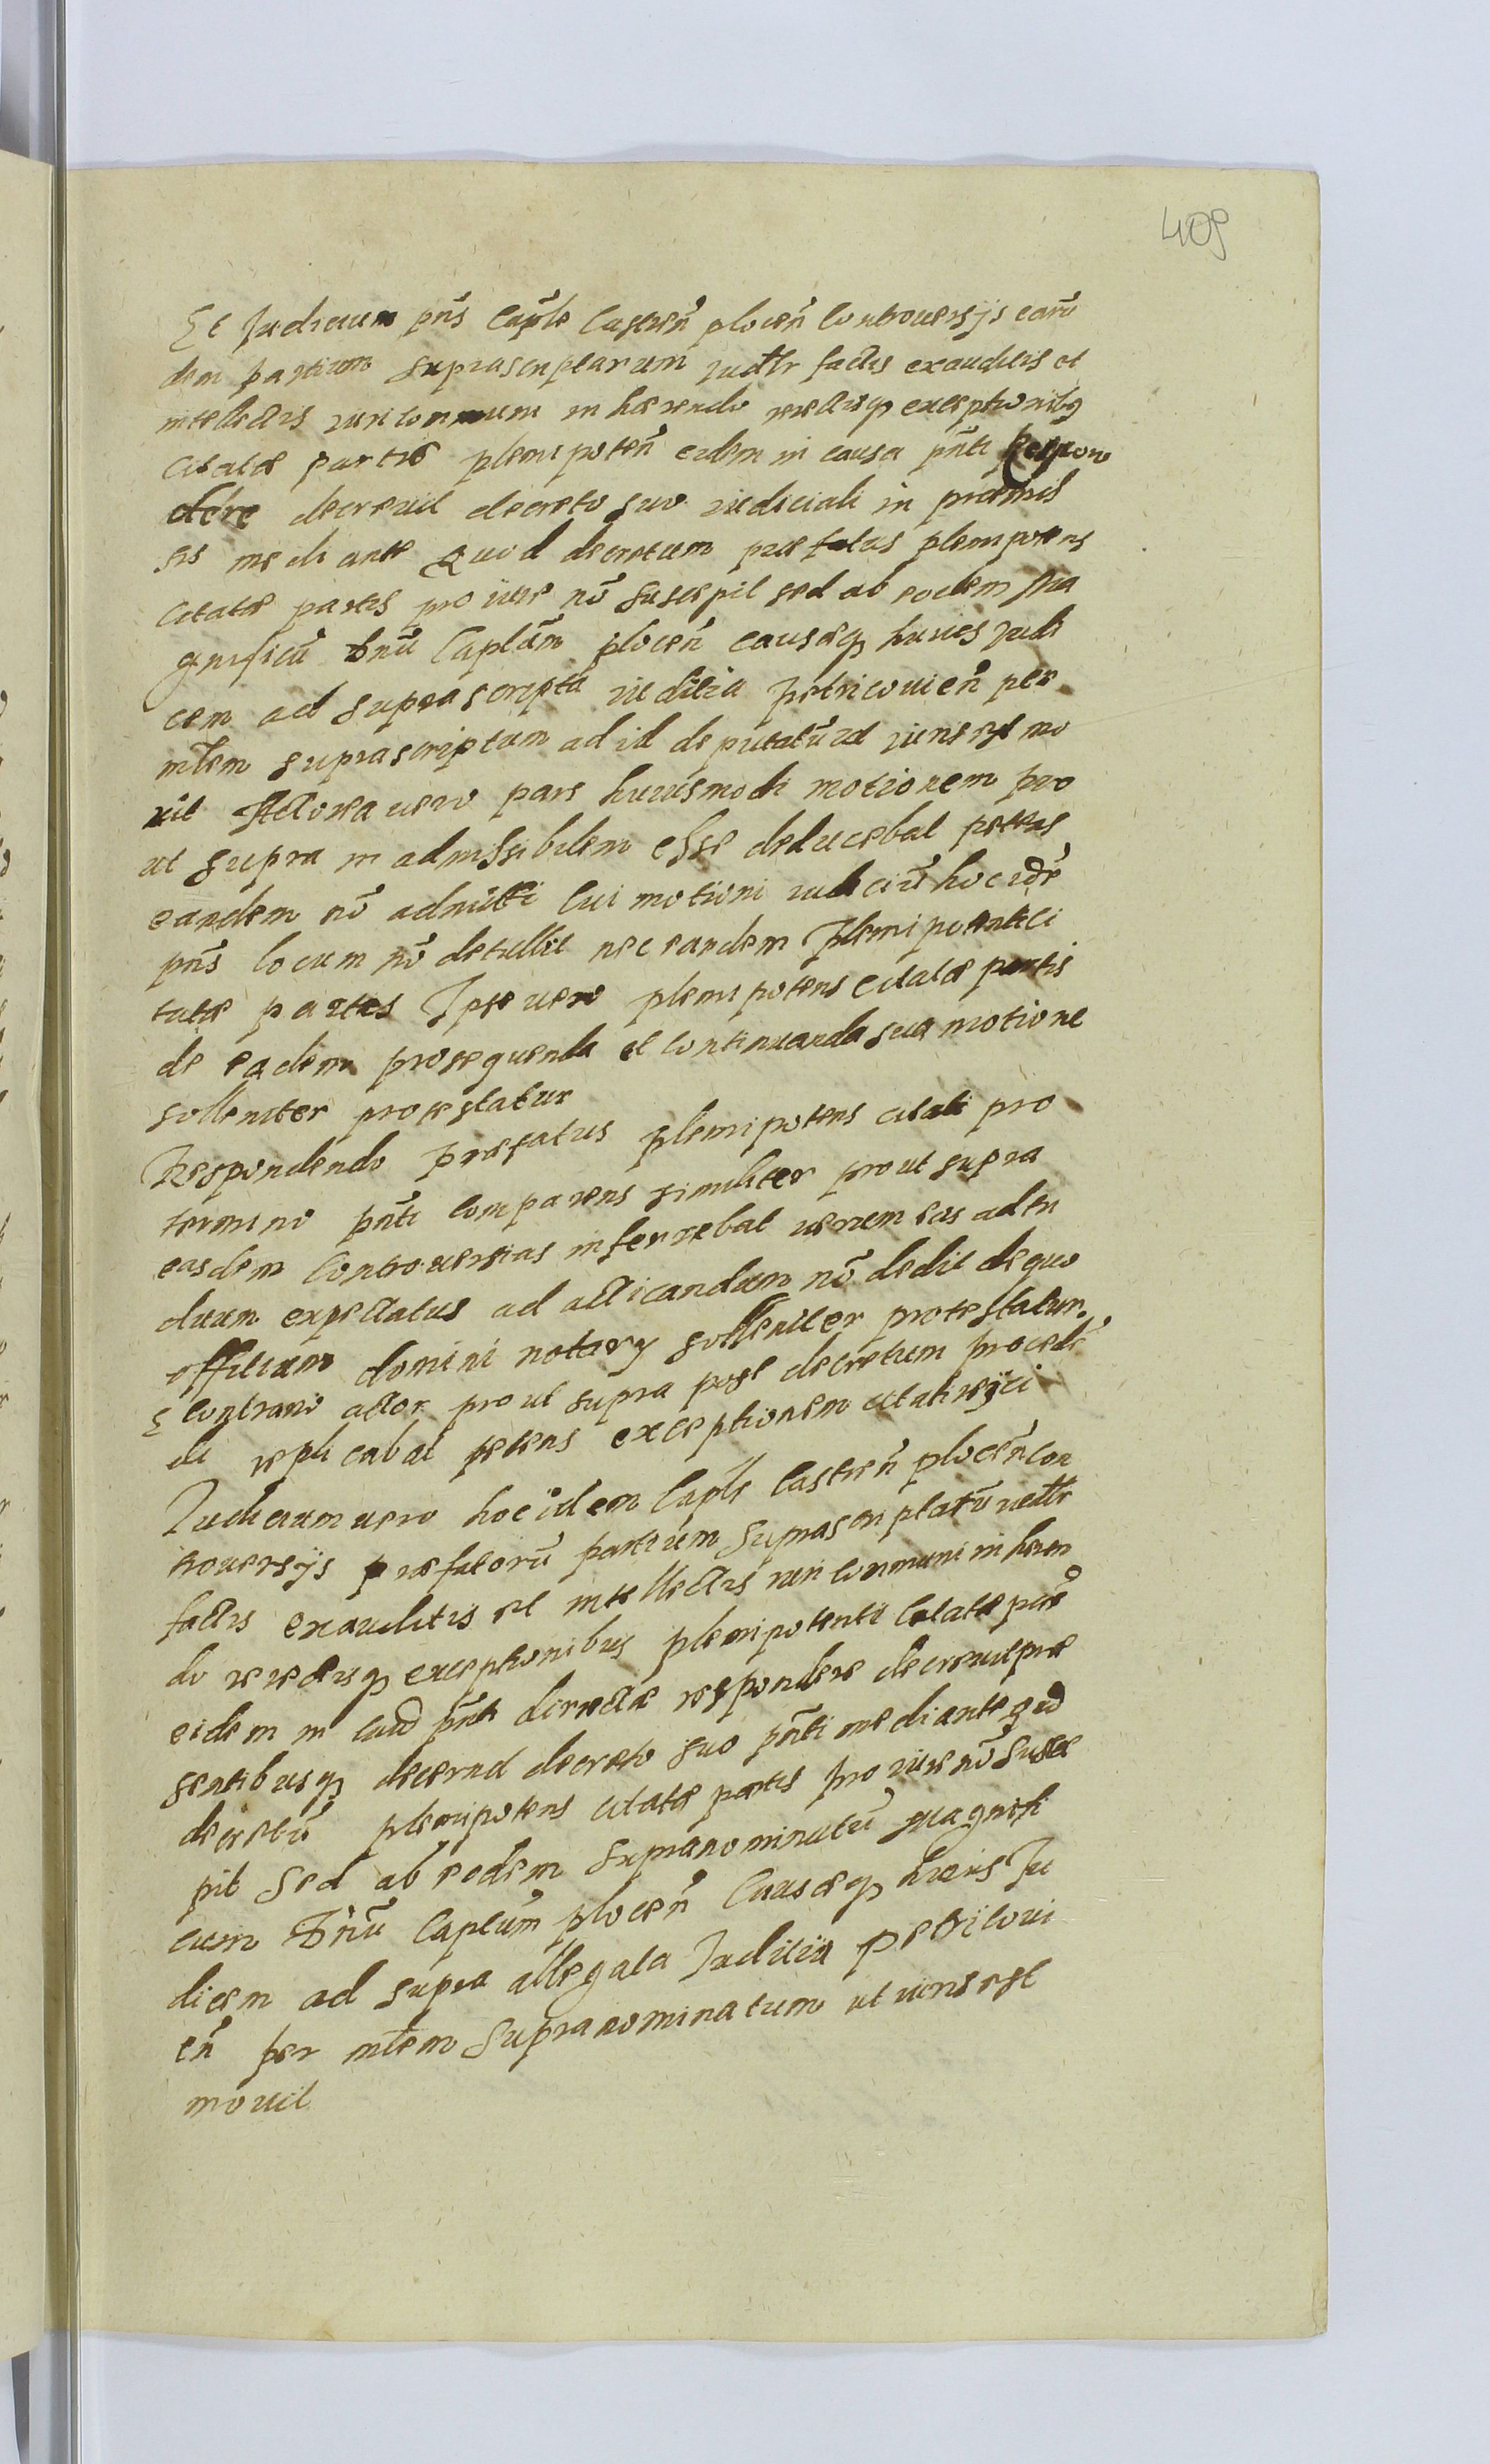 409
Et Judicium pñs Capľe Castreñ ploceñ Controuersijs earũ
dem partium suprascriptarum Judľr factis exauditis et
intellectis iuri communi in hærendo reiectisqꝫ exceptionibꝫ
Citatæ partis plenipoteñ eidem in causa pñti Respon
dere decreuit decreto suo iudiciali in præmis
sis mediante Quod decretum præfatus plenipotens
Citatæ partis pro iure nõ suscepit sed ab eodem Ma
gnificũ Dnũ Captãm ploceñ causæqꝫ huius Judi
cem ad suprascripta iuditia petricouieñ per
mľem suprascriptum ad id deputatũ ut iuris est mo
uit Actorea uero pars huiusmodi motionem pro
ut supra in admissibilem esse deducebat petens
eandem nõ admitti Cui motioni iudiciũ hoc idẽ
pñs locum nõ detullit nec eandem plenipotenti ci
tatæ partis Ipse uero plenipotens citatæ partis
de eadem prosequenda et continuanda sua motione
solleniter protestatur
Respondendo præfatus plenipotens citati pro
termino pñti comparens similiter prout supra
easdem Controuersias inferrebat uerum eas ad tri
duum expectatus ad acticandum nõ dedit de quo
offitium domini notarij solleniter protestatur
E contrario actor prout supra post decretum procedẽ
di replicabat petens exceptionem citati reijci
Judicium uero hoc idem Capľe Castreñ ploceñ con
trouersijs præfatorũ partium suprascriptatũ iudľr
factis exauditis et intellectis iuri communi in hæren
do reiectisqꝫ exceptionibus plenipotenti Citatæ partis
eidem in causa pñti directæ respondere decreuit præ
sentibusqꝫ decernit decreto suo pñti mediante qď
decretũ plenipotens citatæ partis pro iure nõ susce
pit Sed ab eodem supranominatũ Magnifi
cum Dnũ Captũm ploceñ Causæqꝫ huius Ju
dicem ad supra allegata Juditia petricoui
eñ per mľem supranominatum ut iuris est
mouit